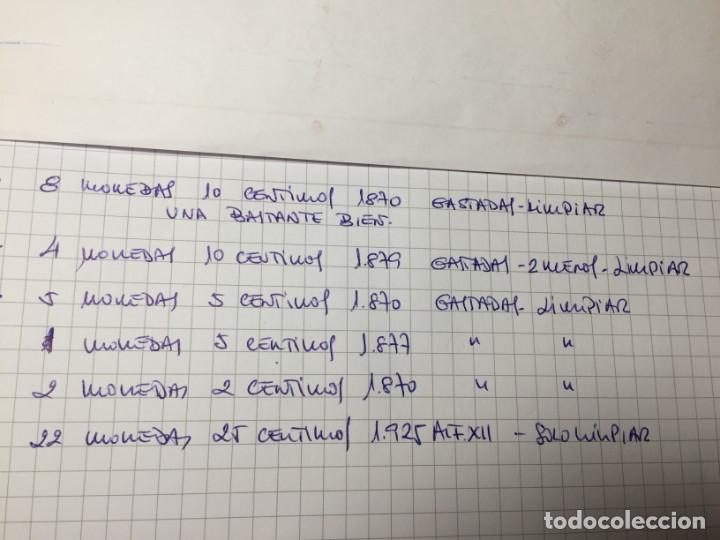 8 MONEDAS 10 CENTIMOS 1870 GASTADAS-LIMPIAR
UNA BASTANTE BIEN.
4 MONEDAS 10 CENTIMOS 1.879 GASTADAS-2 MENOS-LIMPIAR
5 MONEDAS 5 CENTIMOS 1.870 GASTADAS-LIMPIAR
1 MONEDAS 5 CENTIMOS 1.877 " "
2 MONEDAS 2 CENTIMOS 1.870 " "
22 MONEDAS 25 CENTIMOS 1.925 ALF.XII - SOLO LIMPIAR
todocoleccion
todocoleccion.net